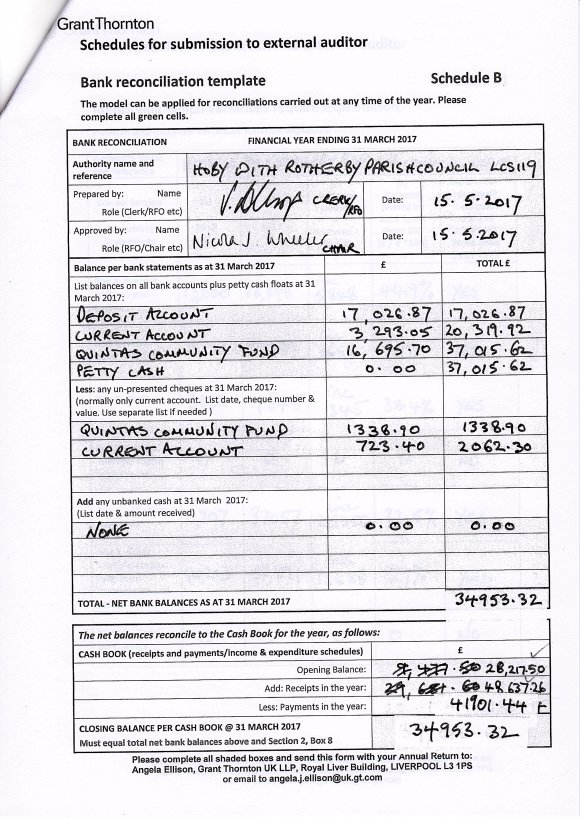 Grant Thornton
Schedules for submission to external auditor
Bank reconciliation template Schedule B
The model can be applied for reconciliations carried out at any time of the year. Please
complete all green cells.
BANK RECONCILIATION FINANCIAL YEAR ENDING 31 MARCH 2017
Authority name and
reference HOBY WITH ROTHERBY PARISH COUNCIL LCS119
Prepared by: Name
Role (Clerk/RFO etc) CLERK/RFO Date: 15.5.2017
Approved by: Name
Role (RFO/Chair etc) Nicola J. Wheeler CHAIR Date: 15.5.2017
Balance per bank statements as at 31 March 2017 £ TOTAL £
List balances on all bank accounts plus petty cash floats at 31
March 2017:
DEPOSIT ACCOUNT 17,026.87 17,026.87
CURRENT ACCOUNT 3,293.05 20,319.92
QUINTAS COMMUNITY FUND 16,695.70 37,015.62
PETTY CASH 0.00 37,015.62
Less: any un-presented cheques at 31 March 2017:
(normally only current account. List date, cheque number &
value. Use separate list if needed )
QUINTAS COMMUNITY FUND 1338.90 1338.90
CURRENT ACCOUNT 723.40 2062.30
Add any unbanked cash at 31 March 2017:
(List date & amount received)
NONE 0.00 0.00
TOTAL - NET BANK BALANCES AS AT 31 MARCH 2017 34953.32
The net balances reconcile to the Cash Book for the year, as follows:
CASH BOOK (receipts and payments/income & expenditure schedules) £
Opening Balance: 28,217.50
Add: Receipts in the year: 48,637.26
Less: Payments in the year: 41901.44
CLOSING BALANCE PER CASH BOOK @ 31 MARCH 2017
Must equal total net bank balances above and Section 2, Box 8 34953.32
Please complete all shaded boxes and send this form with your Annual Return to:
Angela Ellison, Grant Thornton UK LLP, Royal Liver Building, LIVERPOOL L3 1PS
or email to angela.j.ellison@uk.gt.com